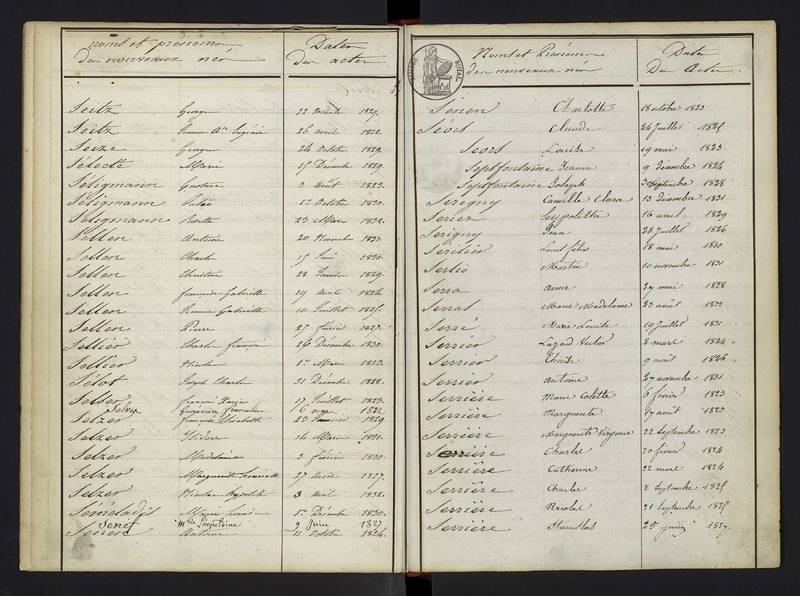 Noms et prénoms
des nouveaux nés
Dates
des actes
Seitz George 22 1829.
Seitz 26 avril 1832.
Seize George 24 Octobre 1829.
Sélecte Marie 15 Décembre 1829.
Séligmann Gustave 3 Août 1823.
Séligmann Julie 1er Octobre 1830.
Séligmann 23 Mars 1832.
Sellen Antoine 20 Novembre 1831.
Sellen Charles 15 Juin 1830.
Sellen Christine 28 Janvier 1829.
Sellen françoise Gabrielle 19 avril 1824.
Sellen Jeanne Gabrielle 10 Juillet 1825.
Sellen Pierre 27 février 1827.
Sellier Charles françois 29 Décembre 1830.
Sellier Nicolas 1er Mars 1823.
Sélot Joseph Charles 31 Décembre 1828.
Selser françois 17 Juillet 1823.
Selve Geneviève francoise 6 1822
Selzer françoise Elisabeth 23 1829
Selzer Isidore 14 Mars 1831.
Selzer Madelaine 2 février 1830
Selzer Marguerite 27 Août 1827.
Selzer Nicolas hypolite 3 avril 1832.
Marie Louise 1er Décembre 1830.
Senef Mie Léopoldine 9 Juin 1827
Antoine 11 Octobre 1824.
TIMBRE ROYAL
Noms et Prénoms
des nouveaux nés
Dates
Des Actes.
Sénen Charlotte 18 octobre 1823
Séors Claude 24 Juillet 1825
Seors Louise 19 mai 1823
Septfontaine Jeanne 9 décembre 1824
Septfontaine Joseph Septembre 1828
Serigny Camille Clara 13 décembre 1831
Serier hypolithe 16 avril 1829
Serigny Jean 28 Juillet 1826
Sérilier Louis félix 18 mai 1830
Serlió Martin 10 novembre 1831
Serra anne 27 mai 1828
Serrat Marie Madelaine 23 août 1832
Serré Marie Louise 19 Juillet 1831
Serrier Lazard Victor 2 mars 1824
Serrier Thérèse 9 août 1826
Serrier antoine 27 novembre 1831
Serrière Marie Colette 6 février 1823
Serrière Marguerite 17 août 1823
Serrière Marguerite 22 Septembre 1823
Serrière Charles 20 février 1824
Serrière Catherine 22 mars 1824
Serrière Charles 2 Septembre 1825
Serrière Nicolas 21 Septembre 1825
Serrière Stanislas 25 1827.